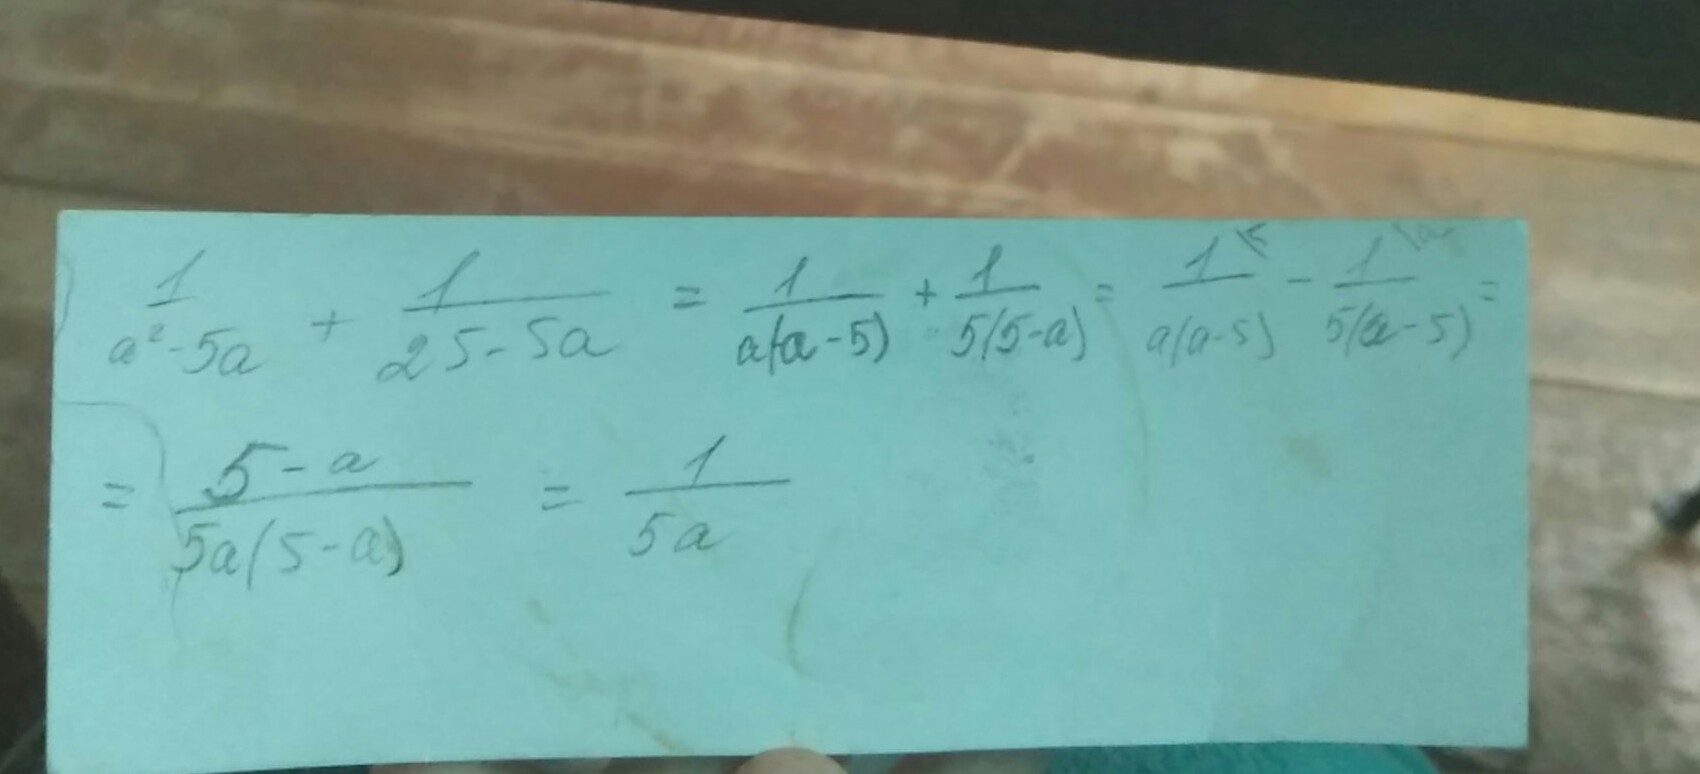 1/(a²-5a) + 1/(25-5a) = 1/(a(a-5)) + 1/(5(5-a)) = 1\5/(a(a-5)) - 1\a/(5(a-5)) =
= (5-a)/(5a(5-a)) = 1/(5a)